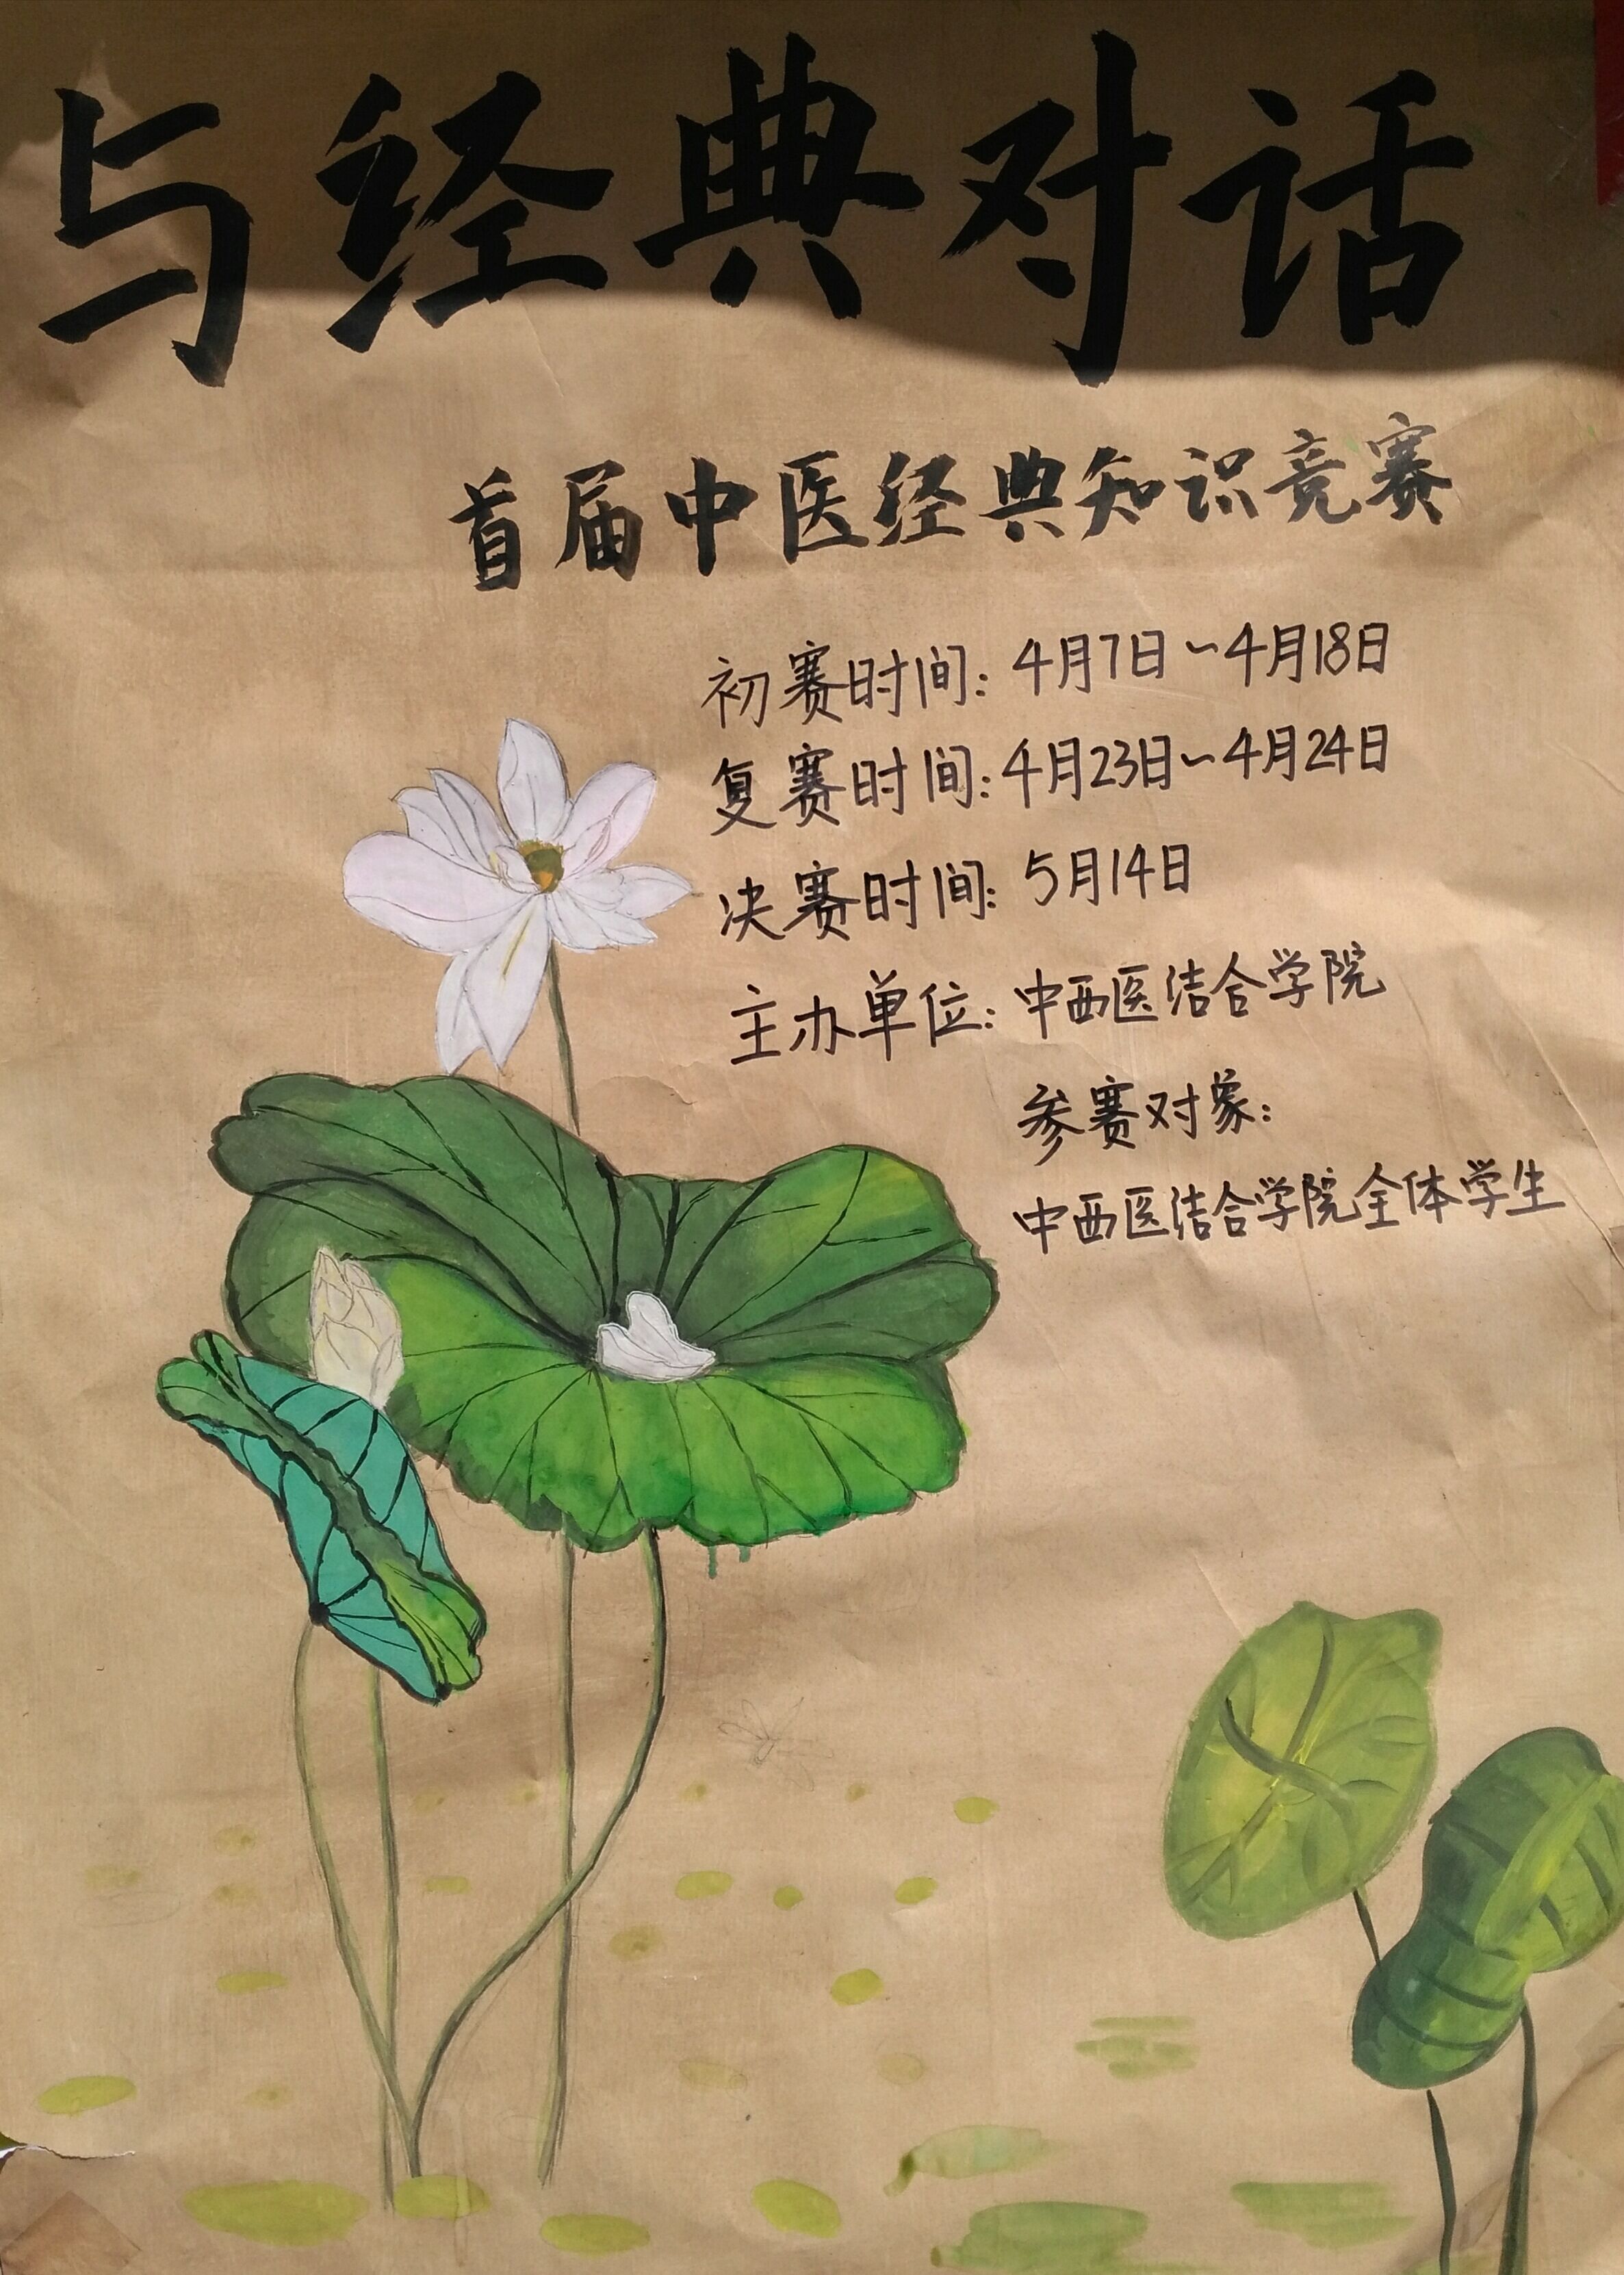 与经典对话
首届中医经典知识竞赛
初赛时间：4月7日~4月18日
复赛时间：4月23日~4月24日
决赛时间：5月14日
主办单位：中西医结合学院
参赛对象：
中西医结合学院全体学生